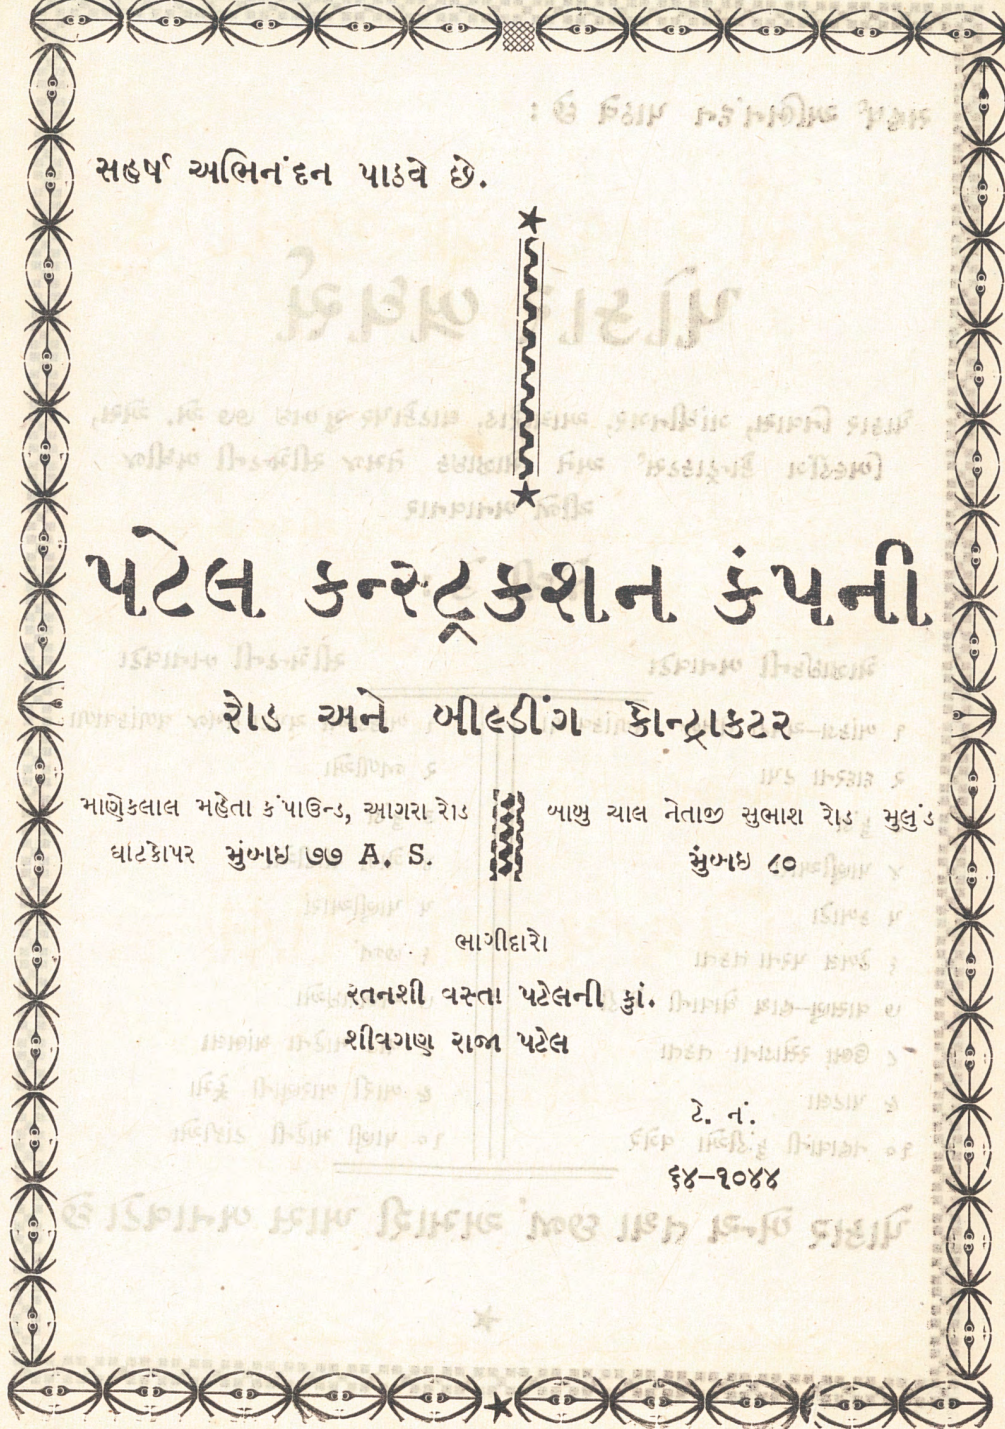 સહર્ષ અભિનંદન પાઠવે છે.
પટેલ કન્સ્ટ્રકશન કંપની
રોડ અને બીલ્ડીંગ કોન્ટ્રાકટર
માણેકલાલ મહેતા કંપાઉન્ડ, આગરા રોડ
ઘાટકોપર મુંબઇ ૭૭ A. S.
બાબુ ચાલ નેતાજી સુભાશ રોડ મુલુંડ
મુંબઇ ૮૦
ભાગીદારો
રતનશી વસ્તા પટેલની કુાં.
શીવગણ રાજા પટેલ
ટે. નં.
૬૪–૧૦૪૪